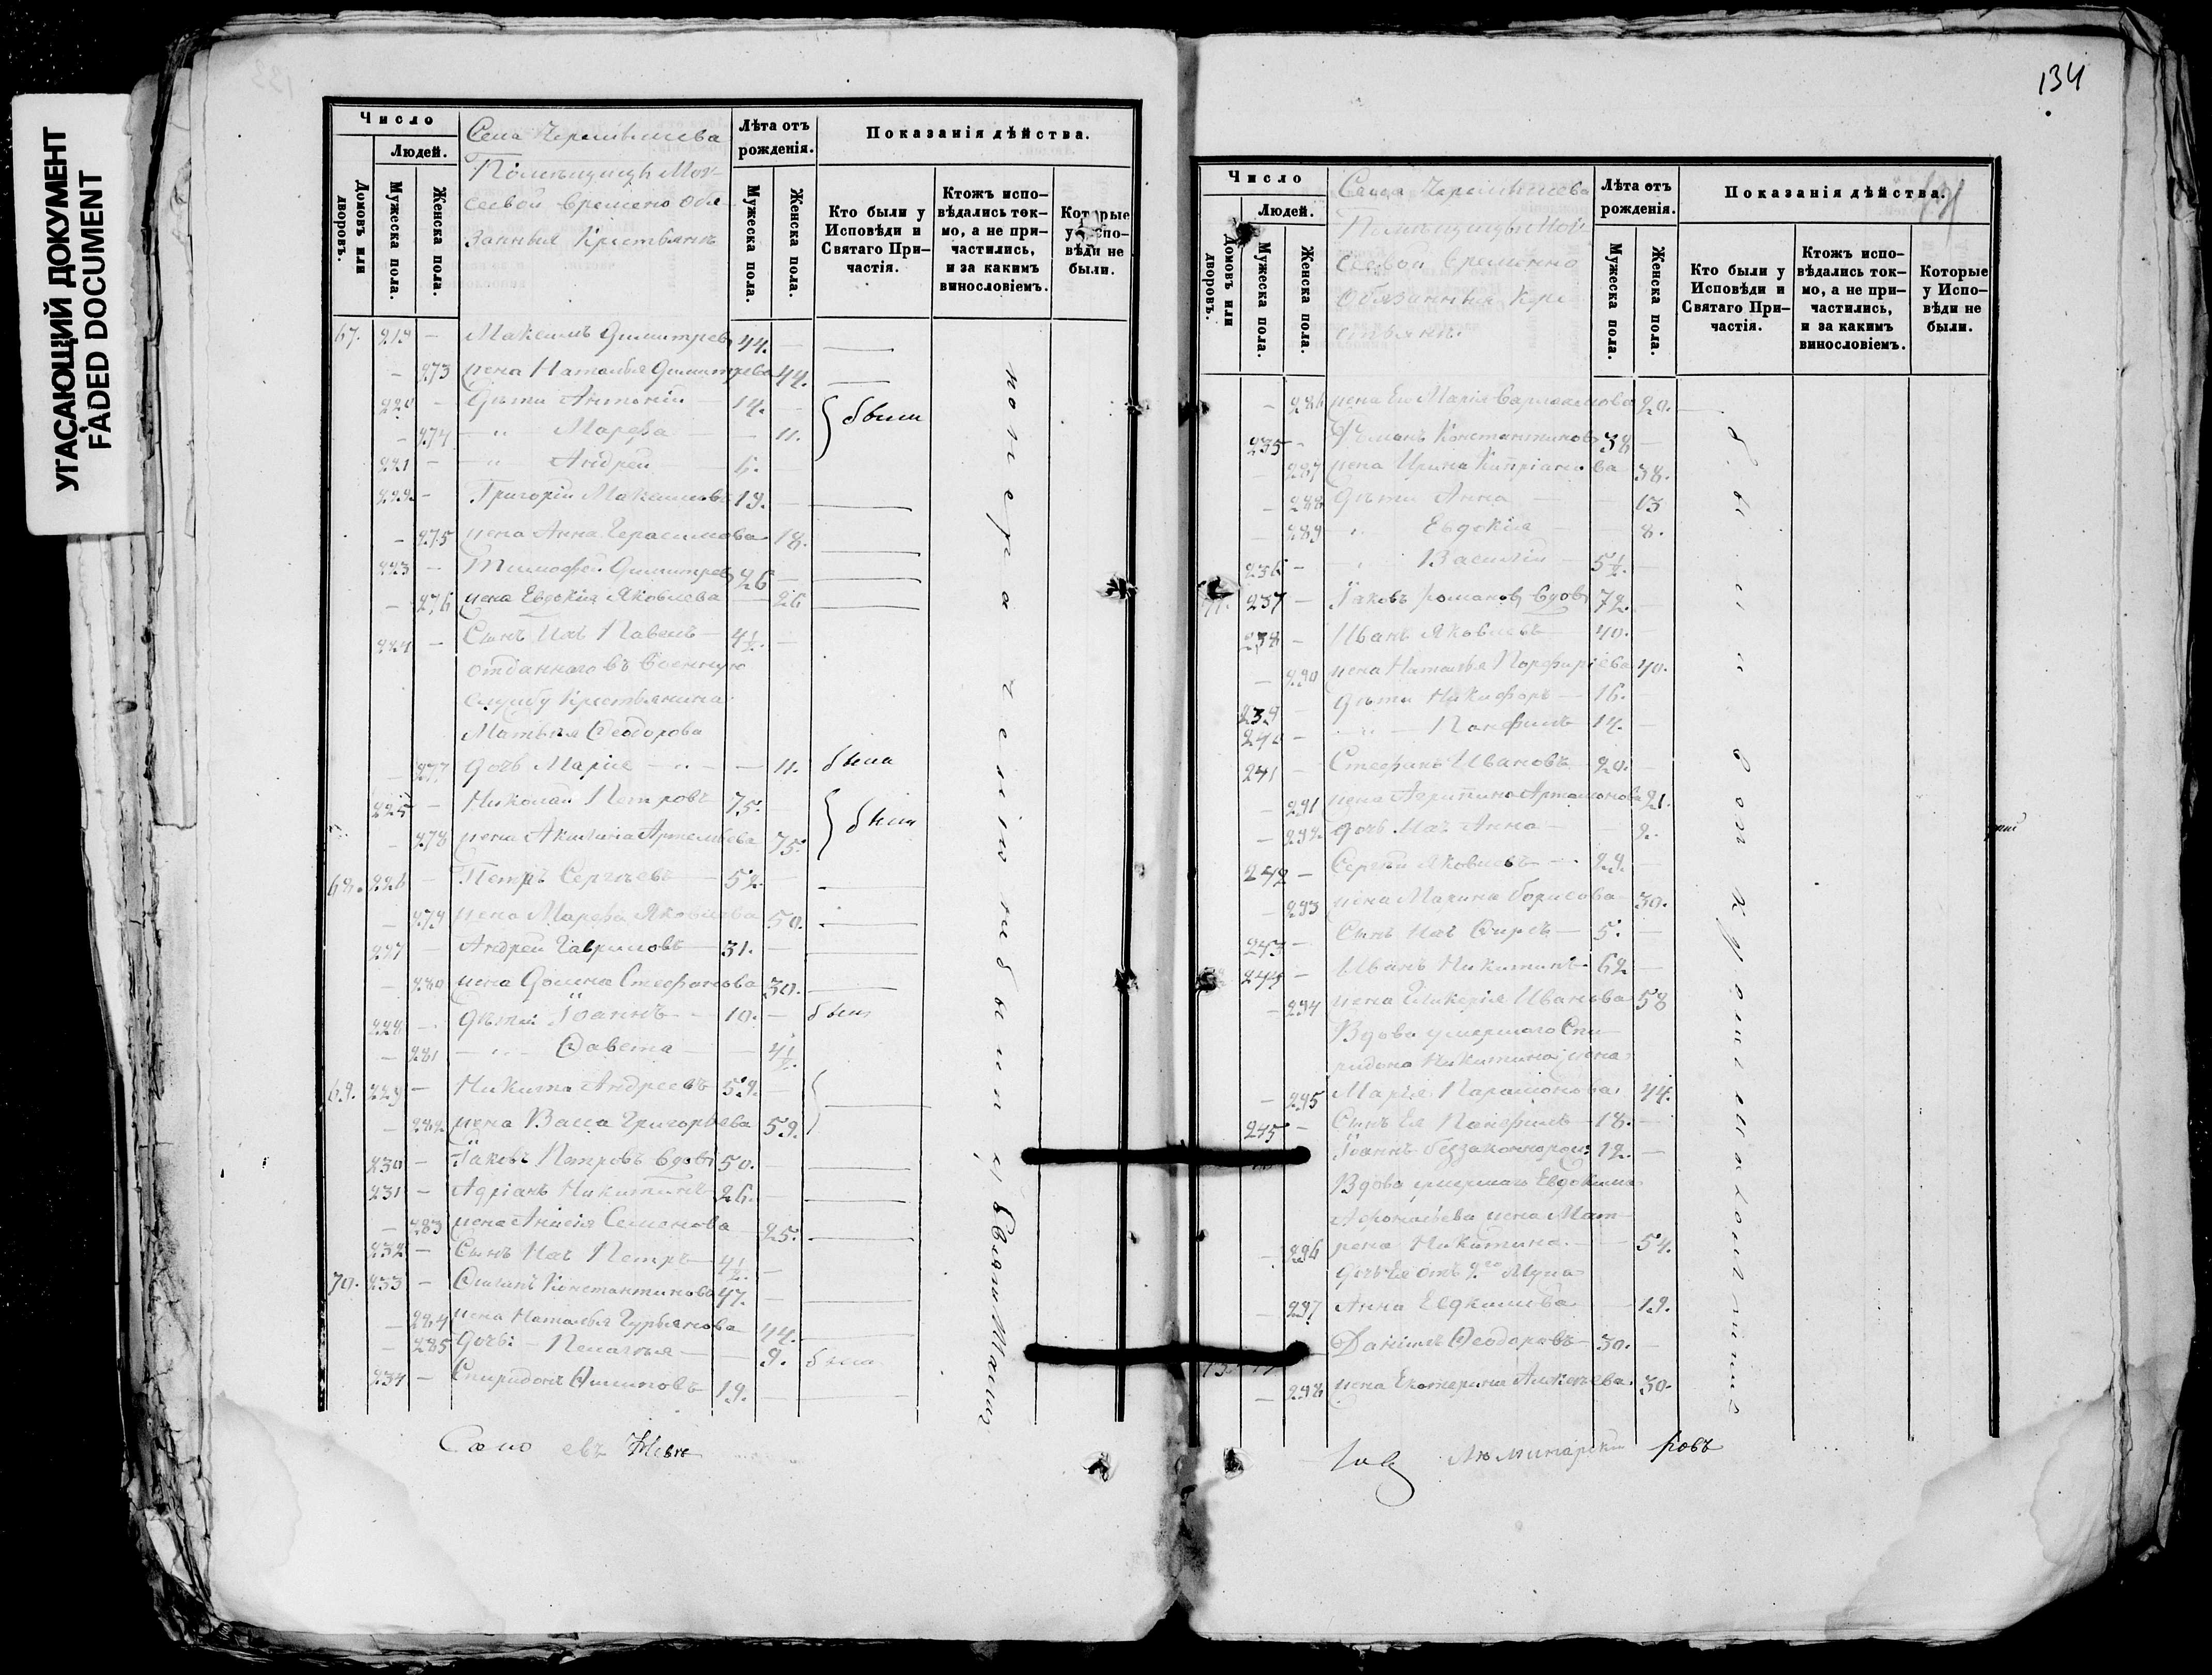 УГАСАЮЩИЙ ДОКУМЕНТ
FADED DOCUMENT
Число
Людей.
Домовъ или дворовъ.
Мужеска пола.
Женска пола.
Села
Помѣщицы Мои-
сеевой времено обя-
занныя Крестьяне
Лѣта отъ рожденія.
Мужеска пола.
Женска пола.
Показанія дѣйства.
Кто были у Исповѣди и Святаго При-частія.
Ктожъ испо-вѣдались ток-мо, а не при-частились, и за какимъ винословіемъ.
Которые у Испо-вѣди не были.
67. 219 – Максимъ Димитревъ 44. –
– 273 жена Наталья Димитрева 44.
220 – Дѣти Антоній 14. – были
– 274 – " Марѳа – 11.
221 – – " Андрей 6. –
222 – Григорій Максимовъ 19. –
– 275 жена Анна Герасимова 18.
223 – Тимофей Димитревъ 26 –
– 276 жена Евдокія Яковлева – 26
224 – Сынъ Ихъ Павелъ 4½. –
отданнаго въ военную
службу крестьянина
Матвѣя Ѳеодорова
– 277 дочь Марія – " – – 11. была
225 – Николай Петровъ 75. были
– 278 жена Акилина Артемьева 75.
68. 226 – Петръ Сергѣевъ 52. –
– 279 жена Марѳа Яковлева 50.
227 – Андрей Гавриловъ 31. –
– 280 жена Стефанова 30.
228 – дѣти Іоаннъ 10. – былъ
– 281 – " – 4½.
69. 229 – Никита Андреевъ 59. –
– 282 жена Васса Григорьева 59.
230 – Іаковъ Петровъ вдовъ 50. –
231 – Адріанъ Никитинъ 26. –
– 283 жена Анисія Семенова 25.
232 – Сынъ Ихъ Петръ 4½. –
70. 233 – Константиновъ 47. –
– 284 жена Наталья Гурьянова 44.
– 285 Дочь – Пелагея – 9. была
234 – Спиридонъ 19. –
134
Число
Людей.
Домовъ или дворовъ.
Мужеска пола.
Женска пола.
Села
Помѣщицы Мои-
сеевой временно
обязанныя кре-
стьяне.
Лѣта отъ рожденія.
Мужеска пола.
Женска пола.
Показанія дѣйства.
Кто были у Исповѣди и Святаго При-частія.
Ктожъ испо-вѣдались ток-мо, а не при-частились, и за какимъ винословіемъ.
Которые у Испо-вѣди не были.
– 286 жена Ев Марія Варлаамова 20.
235 – Романъ Константиновъ 38 –
– 287 жена Ирина Кипріанова 38.
– 288 Дѣти Анна – – 13
– 289 " Евдокія – 8.
236 – " Василій 5½. –
237 – Іаковъ Романовъ вдовъ 72. –
238 – Иванъ Яковлевъ 40. –
– 290 жена Наталья Порфиріева 40.
239 – дѣти Никифоръ 16. –
240 – – " – Панфилъ 14. –
241 – Стефанъ Ивановъ 20. –
– 291 жена Агрипина Артамонова 21.
– 292 дочь Ихъ Анна – 2.
242 – Сергѣй Яковлевъ 29. –
– 293 жена Марина Борисова 30.
243 – Сынъ Ихъ 5. –
244 – Иванъ Никитинъ 62 –
– 294 жена Гликерія Иванова 58
Вдова умершаго Спи-
ридона Никитина жена
– 295 Марья Парамонова 44.
245 – Сынъ Ея Панфилъ 18. –
Іоаннъ беззаконнорож: 12. –
Вдова умершаго Евдокима
Афонасьева жена Мат-
– 296 рена Никитина. 54.
дочь Ея отъ 2го Мужа
– 297 Анна Евдкимова 19.
Даніилъ Ѳеодоровъ 30. –
– 298 жена Екатерина Алексѣева. 30.